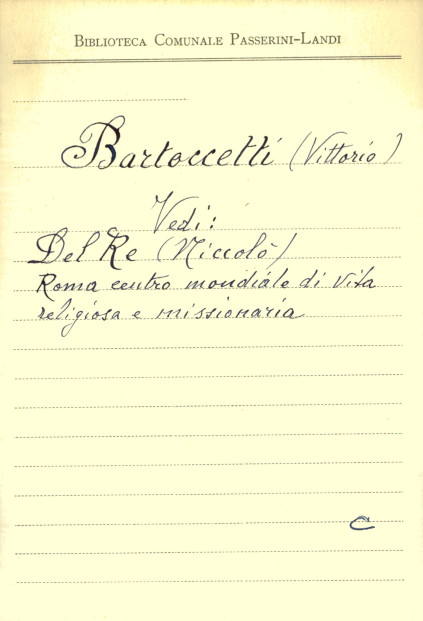 BIBLIOTECA COMUNALE PASSERINI-LANDI
Bartoccetti (Vittorio)
Vedi:
Del Re (Niccolò)
Roma centro mondiale di vita
religiosa e missionaria
C